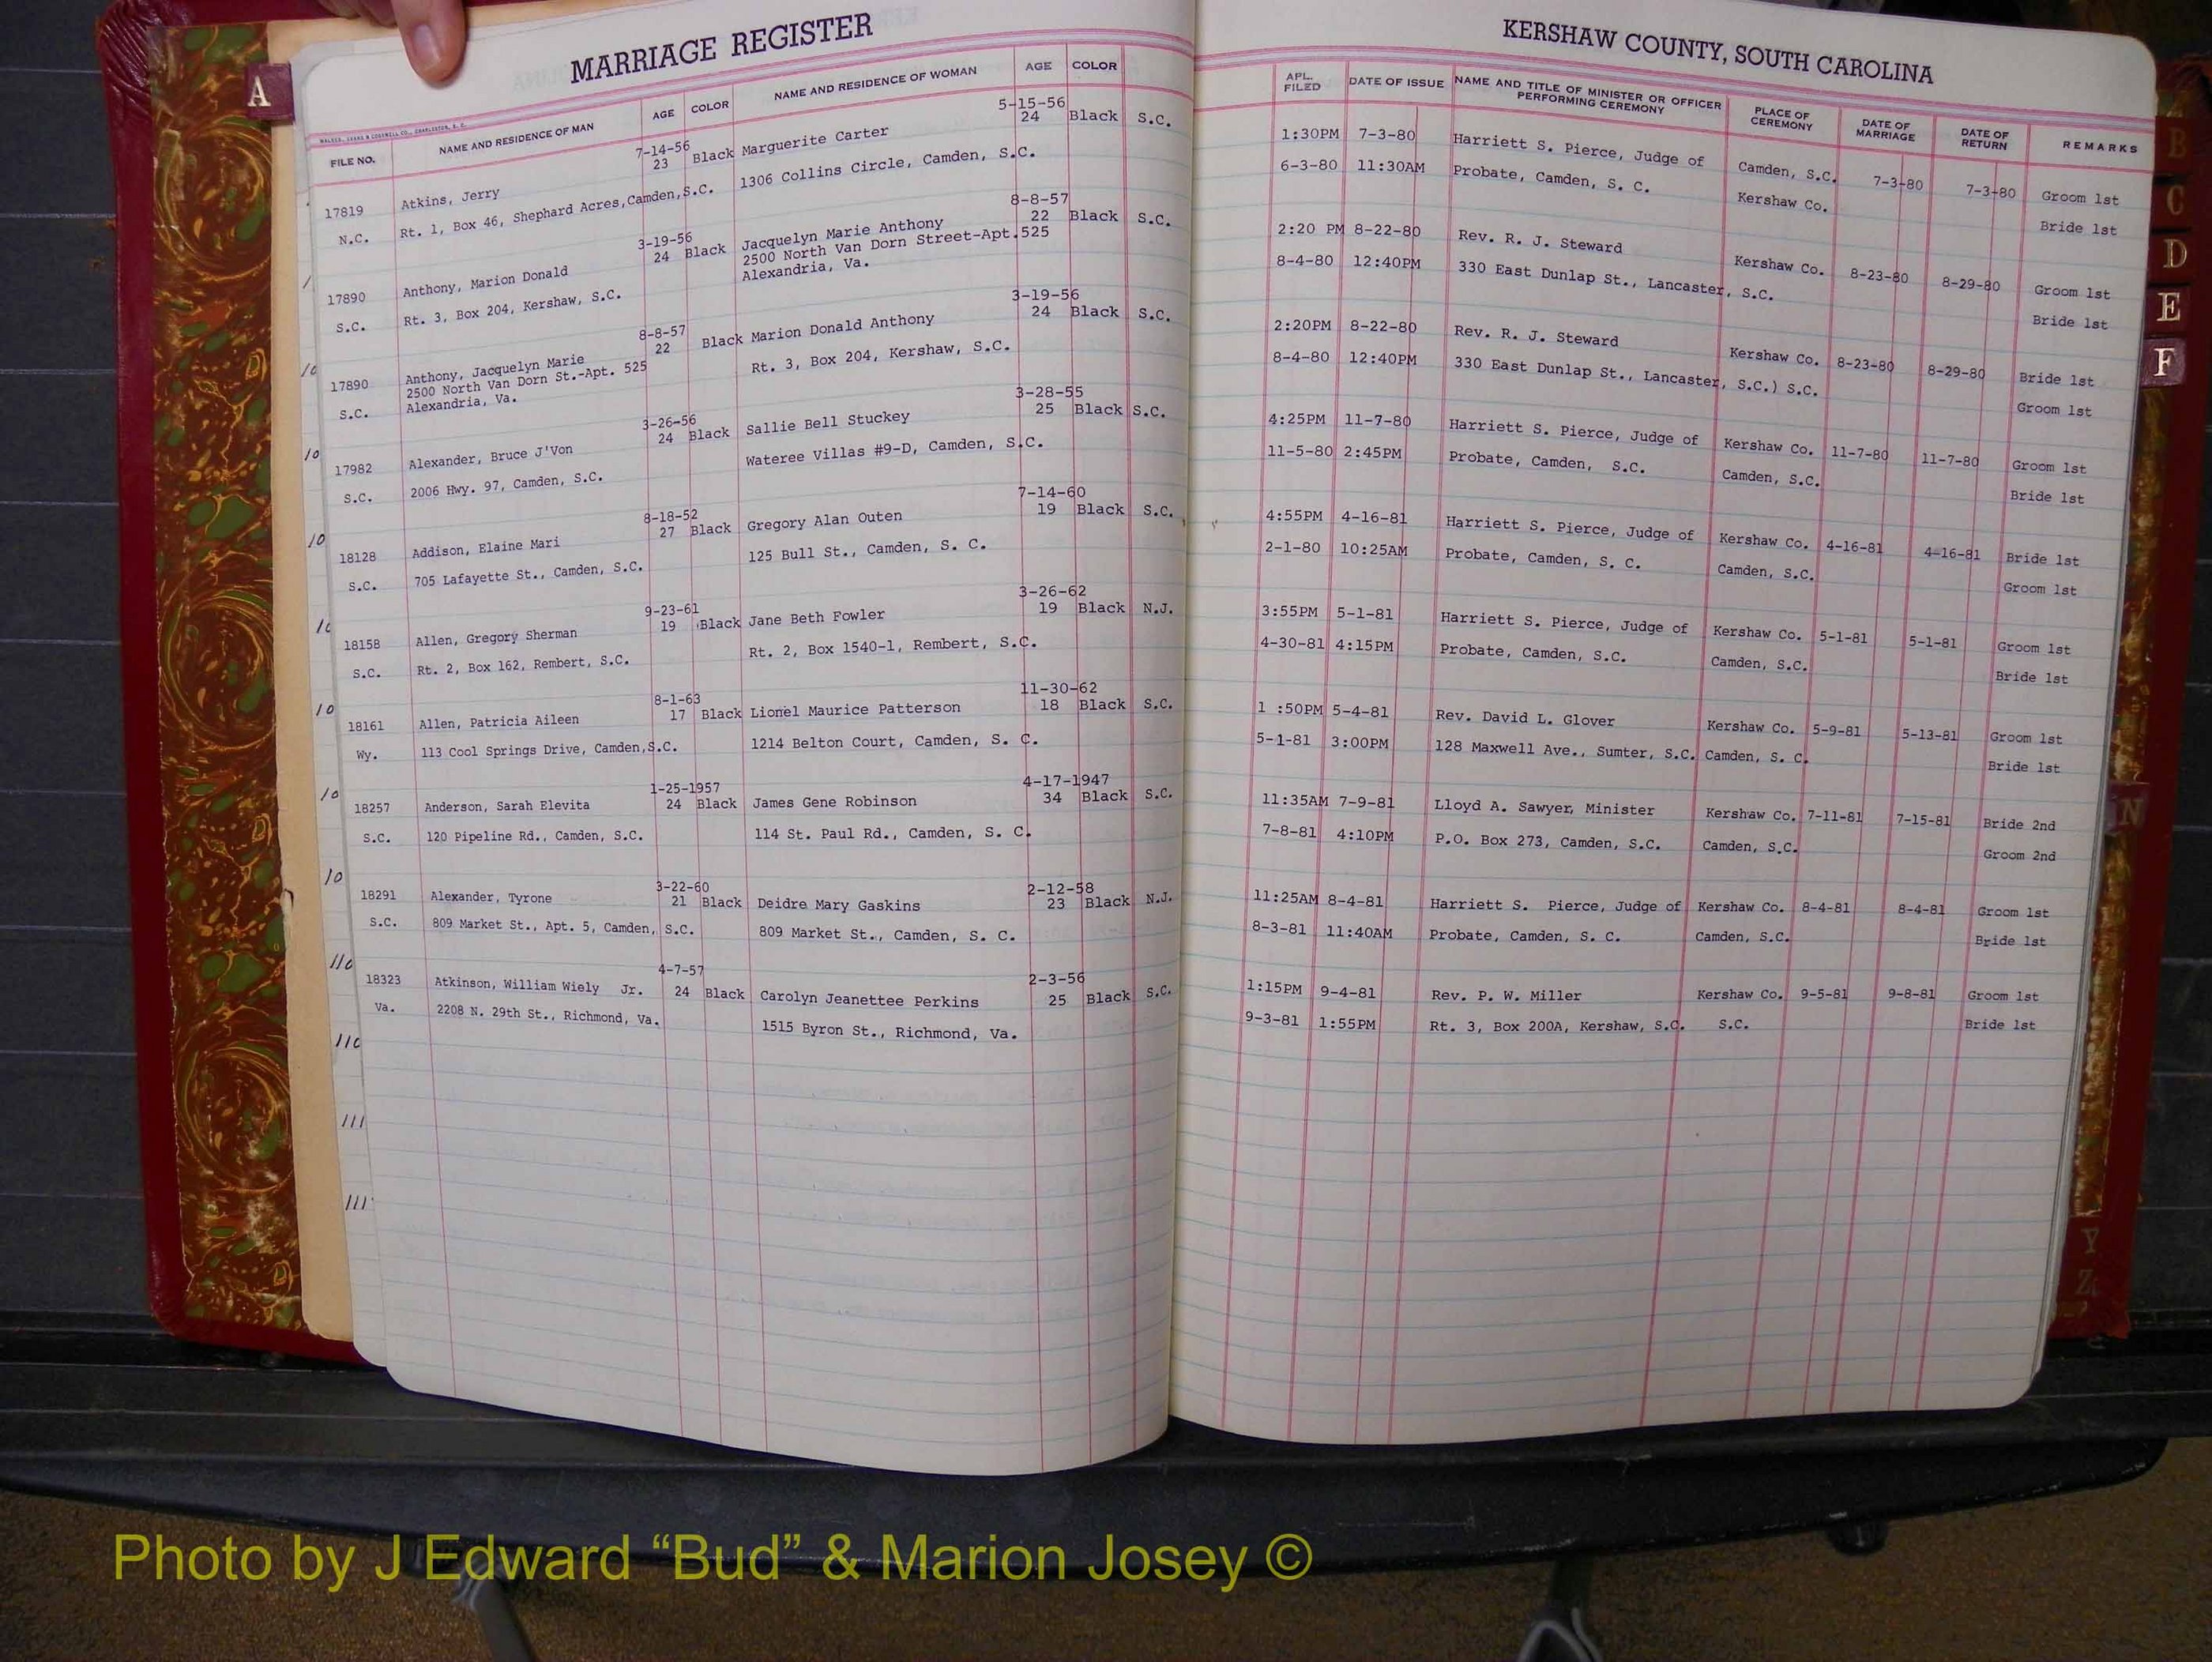 MARRIAGE REGISTER
KERSHAW COUNTY, SOUTH CAROLINA
A
WALKER, EVANS & COGSWELL CO., CHARLESTON, S. C.
FILE NO. NAME AND RESIDENCE OF MAN AGE COLOR NAME AND RESIDENCE OF WOMAN AGE COLOR
APL. FILED DATE OF ISSUE NAME AND TITLE OF MINISTER OR OFFICER PERFORMING CEREMONY PLACE OF CEREMONY DATE OF MARRIAGE DATE OF RETURN REMARKS
7-14-56 5-15-56
17819 Atkins, Jerry 23 Black Marguerite Carter 24 Black S.C. 1:30PM 7-3-80 Harriett S. Pierce, Judge of Camden, S.C. 7-3-80 7-3-80 Groom 1st
N.C. Rt. 1, Box 46, Shephard Acres,Camden,S.C. 1306 Collins Circle, Camden, S.C. 6-3-80 11:30AM Probate, Camden, S. C. Kershaw Co. Bride 1st
3-19-56 8-8-57
17890 Anthony, Marion Donald 24 Black Jacquelyn Marie Anthony 22 Black S.C. 2:20 PM 8-22-80 Rev. R. J. Steward Kershaw Co. 8-23-80 8-29-80 Groom 1st
2500 North Van Dorn Street-Apt.525
S.C. Rt. 3, Box 204, Kershaw, S.C. Alexandria, Va. 8-4-80 12:40PM 330 East Dunlap St., Lancaster, S.C. Bride 1st
8-8-57 3-19-56
17890 Anthony, Jacquelyn Marie 22 Black Marion Donald Anthony 24 Black S.C. 2:20PM 8-22-80 Rev. R. J. Steward Kershaw Co. 8-23-80 8-29-80 Bride 1st
2500 North Van Dorn St.-Apt. 525
S.C. Alexandria, Va. Rt. 3, Box 204, Kershaw, S.C. 8-4-80 12:40PM 330 East Dunlap St., Lancaster, S.C.) S.C. Groom 1st
3-26-56 3-28-55
17982 Alexander, Bruce J'Von 24 Black Sallie Bell Stuckey 25 Black S.C. 4:25PM 11-7-80 Harriett S. Pierce, Judge of Kershaw Co. 11-7-80 11-7-80 Groom 1st
S.C. 2006 Hwy. 97, Camden, S.C. Wateree Villas #9-D, Camden, S.C. 11-5-80 2:45PM Probate, Camden, S.C. Camden, S.C. Bride 1st
8-18-52 7-14-60
18128 Addison, Elaine Mari 27 Black Gregory Alan Outen 19 Black S.C. 4:55PM 4-16-81 Harriett S. Pierce, Judge of Kershaw Co. 4-16-81 4-16-81 Bride 1st
S.C. 705 Lafayette St., Camden, S.C. 125 Bull St., Camden, S. C. 2-1-80 10:25AM Probate, Camden, S. C. Camden, S.C. Groom 1st
9-23-61 3-26-62
18158 Allen, Gregory Sherman 19 Black Jane Beth Fowler 19 Black N.J. 3:55PM 5-1-81 Harriett S. Pierce, Judge of Kershaw Co. 5-1-81 5-1-81 Groom 1st
S.C. Rt. 2, Box 162, Rembert, S.C. Rt. 2, Box 1540-1, Rembert, S.C. 4-30-81 4:15PM Probate, Camden, S.C. Camden, S.C. Bride 1st
8-1-63 11-30-62
18161 Allen, Patricia Aileen 17 Black Lionel Maurice Patterson 18 Black S.C. 1 :50PM 5-4-81 Rev. David L. Glover Kershaw Co. 5-9-81 5-13-81 Groom 1st
Wy. 113 Cool Springs Drive, Camden,S.C. 1214 Belton Court, Camden, S. C. 5-1-81 3:00PM 128 Maxwell Ave., Sumter, S.C. Camden, S. C. Bride 1st
1-25-1957 4-17-1947
18257 Anderson, Sarah Elevita 24 Black James Gene Robinson 34 Black S.C. 11:35AM 7-9-81 Lloyd A. Sawyer, Minister Kershaw Co. 7-11-81 7-15-81 Bride 2nd
S.C. 120 Pipeline Rd., Camden, S.C. 114 St. Paul Rd., Camden, S. C. 7-8-81 4:10PM P.O. Box 273, Camden, S.C. Camden, S.C. Groom 2nd
3-22-60 2-12-58
18291 Alexander, Tyrone 21 Black Deidre Mary Gaskins 23 Black N.J. 11:25AM 8-4-81 Harriett S. Pierce, Judge of Kershaw Co. 8-4-81 8-4-81 Groom 1st
S.C. 809 Market St., Apt. 5, Camden, S.C. 809 Market St., Camden, S. C. 8-3-81 11:40AM Probate, Camden, S. C. Camden, S.C. Bride 1st
4-7-57 2-3-56
18323 Atkinson, William Wiely Jr. 24 Black Carolyn Jeanettee Perkins 25 Black S.C. 1:15PM 9-4-81 Rev. P. W. Miller Kershaw Co. 9-5-81 9-8-81 Groom 1st
Va. 2208 N. 29th St., Richmond, Va. 1515 Byron St., Richmond, Va. 9-3-81 1:55PM Rt. 3, Box 200A, Kershaw, S.C. S.C. Bride 1st
B
C
D
E
F
N
Y
Z
Photo by J Edward “Bud” & Marion Josey ©